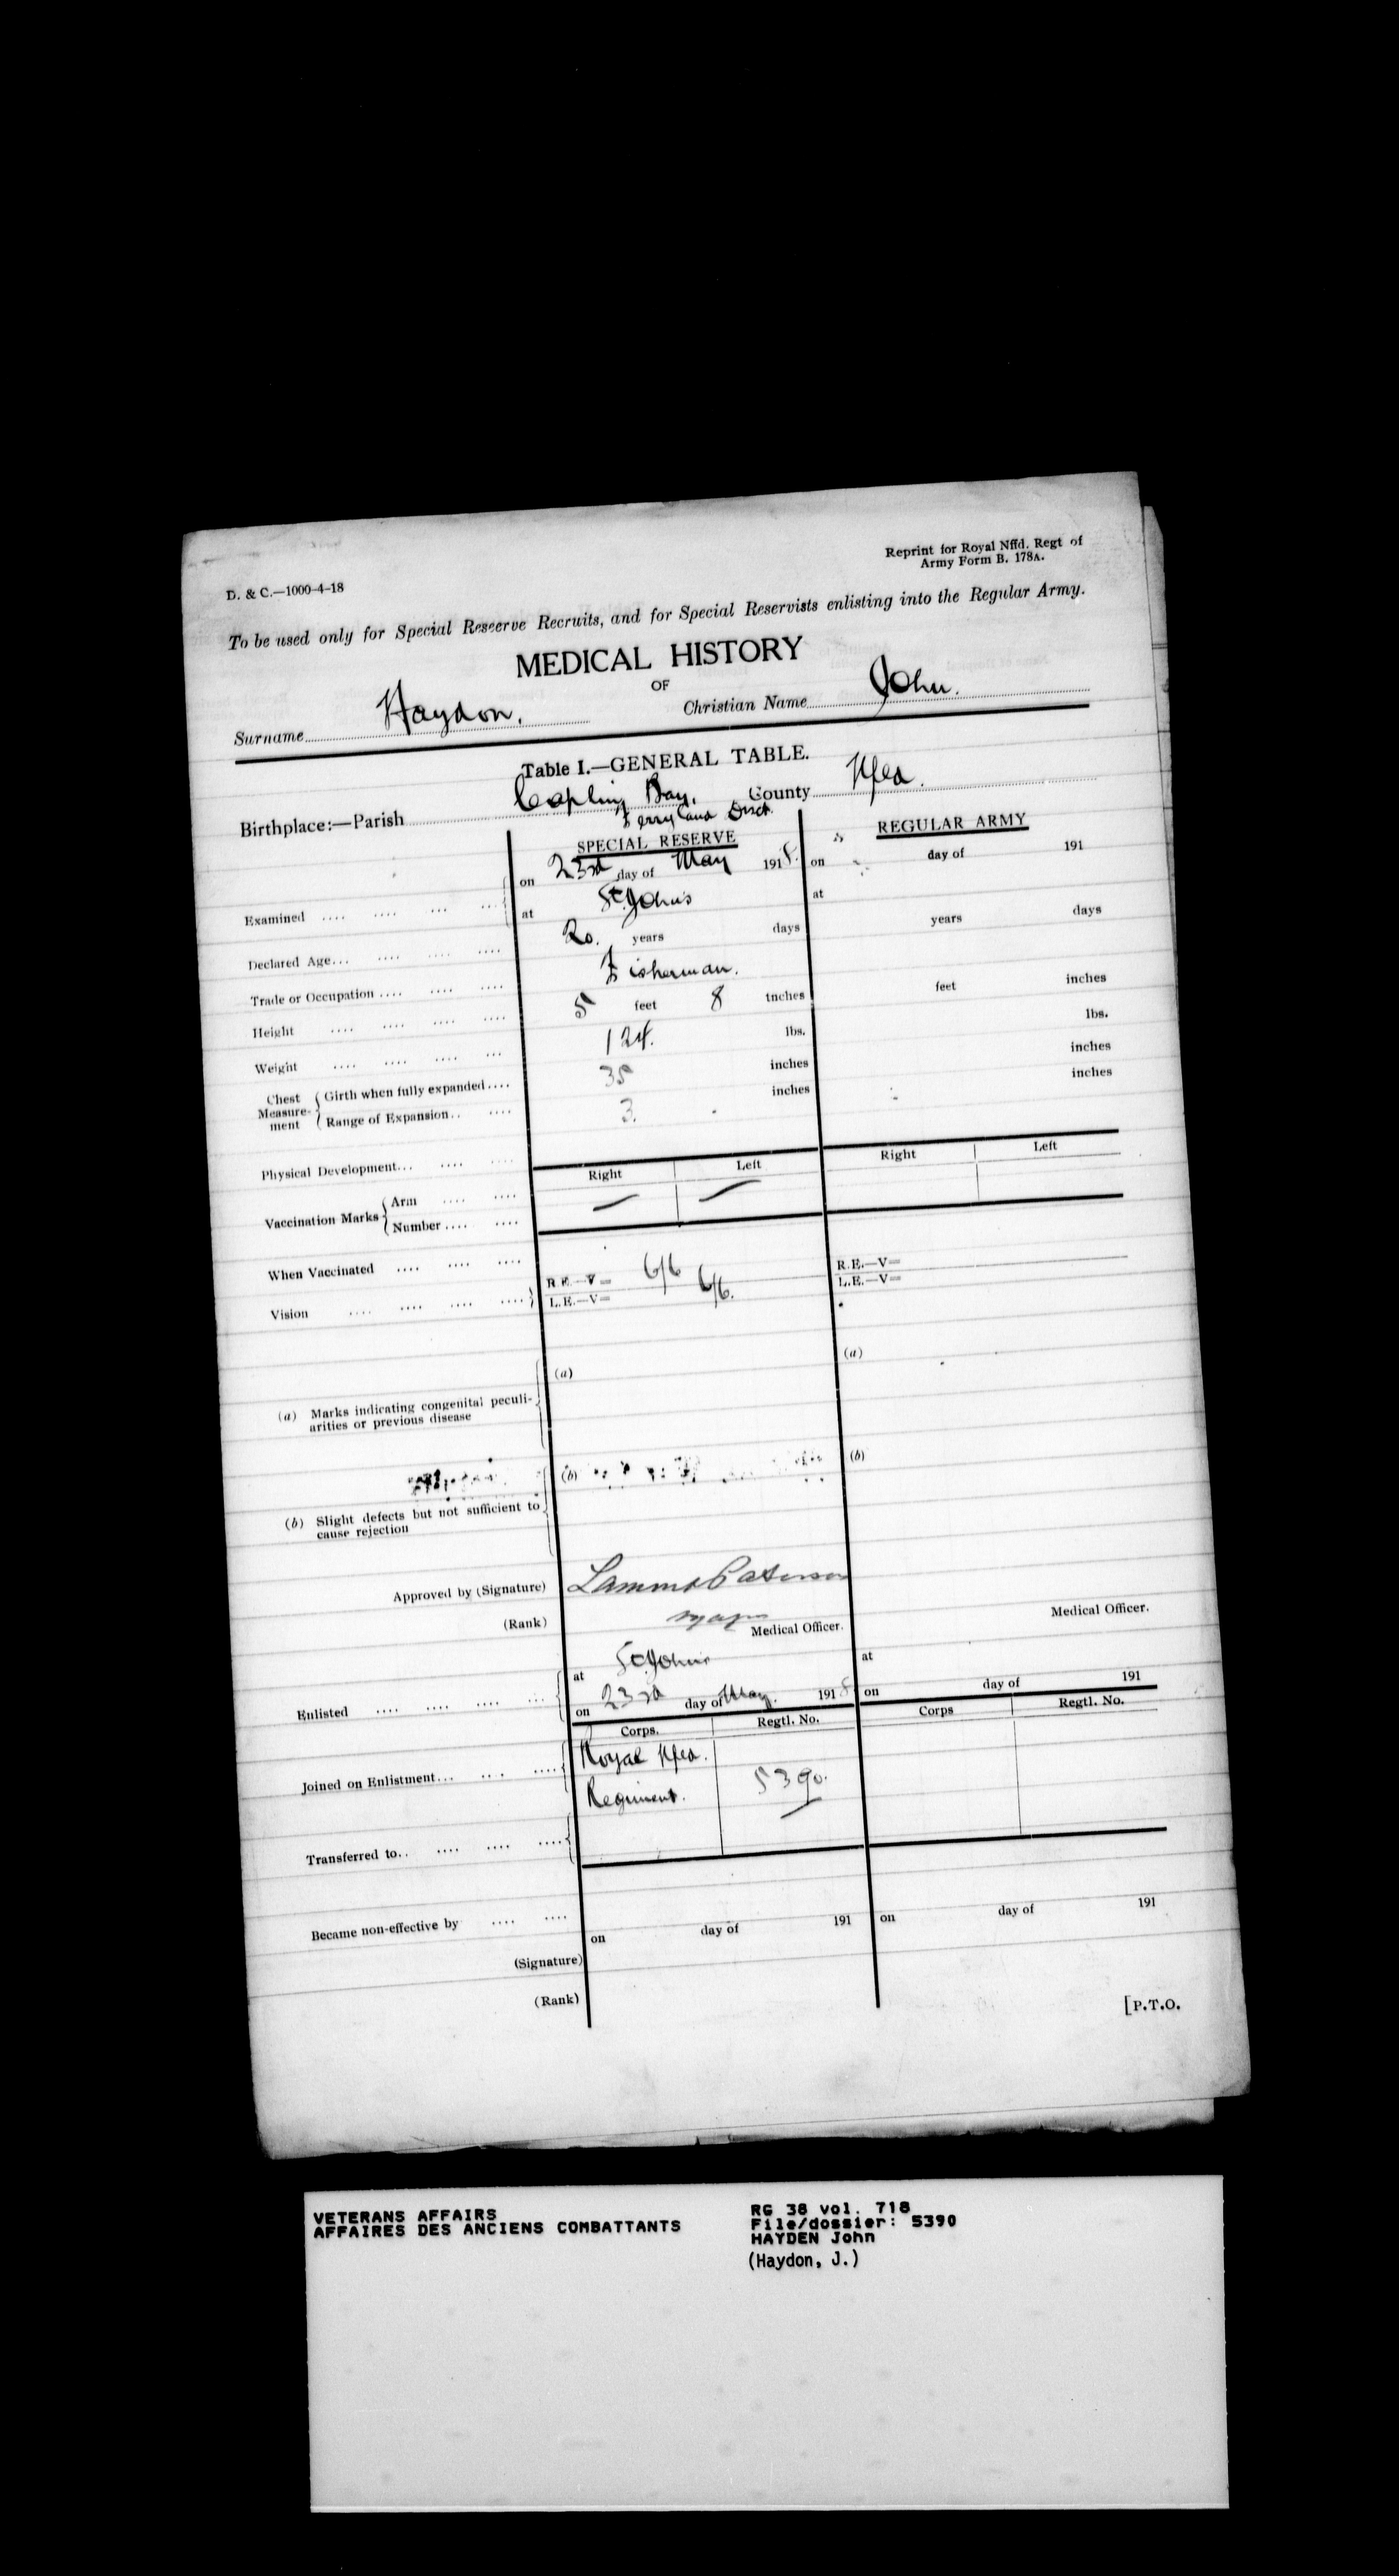 D. & C.—1000-4-18
Reprint for Royal Nffd. Regt of
Army Form B. 178A.
To be used only for Special Reserve Recruits, and for Special Reservists enlisting into the Regular Army.
MEDICAL HISTORY
OF
Surname Haydon. Christian Name John.
Table I.—GENERAL TABLE.
Birthplace:—Parish Capling Bay, County Nfld.
Ferryland Disct.
SPECIAL RESERVE REGULAR ARMY
Examined .... .... ... ... on 23rd day of May 1918. on day of 191
at St John's at
Declared Age... .... .... .... 20. years days years days
Trade or Occupation .... .... .... Fisherman.
Height .... .... .... .... 5 feet 8 inches feet inches
Weight .... .... .... ... 124. lbs. lbs.
Chest Measurement Girth when fully expanded.... 35 inches inches
Range of Expansion.. .... 3. inches inches
Physical Development... .... ....
Right Left Right Left
Vaccination Marks Arm .... .... — —
Number .... ....
When Vaccinated .... .... .... ....
Vision .... .... .... .... R.E.—V= 6/6 R.E.—V=
L.E.—V= 6/6. L.E.—V=
(a) Marks indicating congenital peculi-
arities or previous disease (a) (a)
(b) Slight defects but not sufficient to
cause rejection (b) (b)
Approved by (Signature) Lamont Paterson
(Rank) Major Medical Officer. Medical Officer.
Enlisted .... .... .... ... at St John's at
on 23rd day of May. 1918 on day of 191
Corps. Regtl. No. Corps Regtl. No.
Joined on Enlistment... ... . .... Royal Nfld.
Regiment. 5390.
Transferred to.. .... .... ....
Became non-effective by .... ....
on day of 191 on day of 191
(Signature)
(Rank)
[P.T.O.
VETERANS AFFAIRS
AFFAIRES DES ANCIENS COMBATTANTS
RG 38 vol. 718
File/dossier: 5390
HAYDEN John
(Haydon, J.)